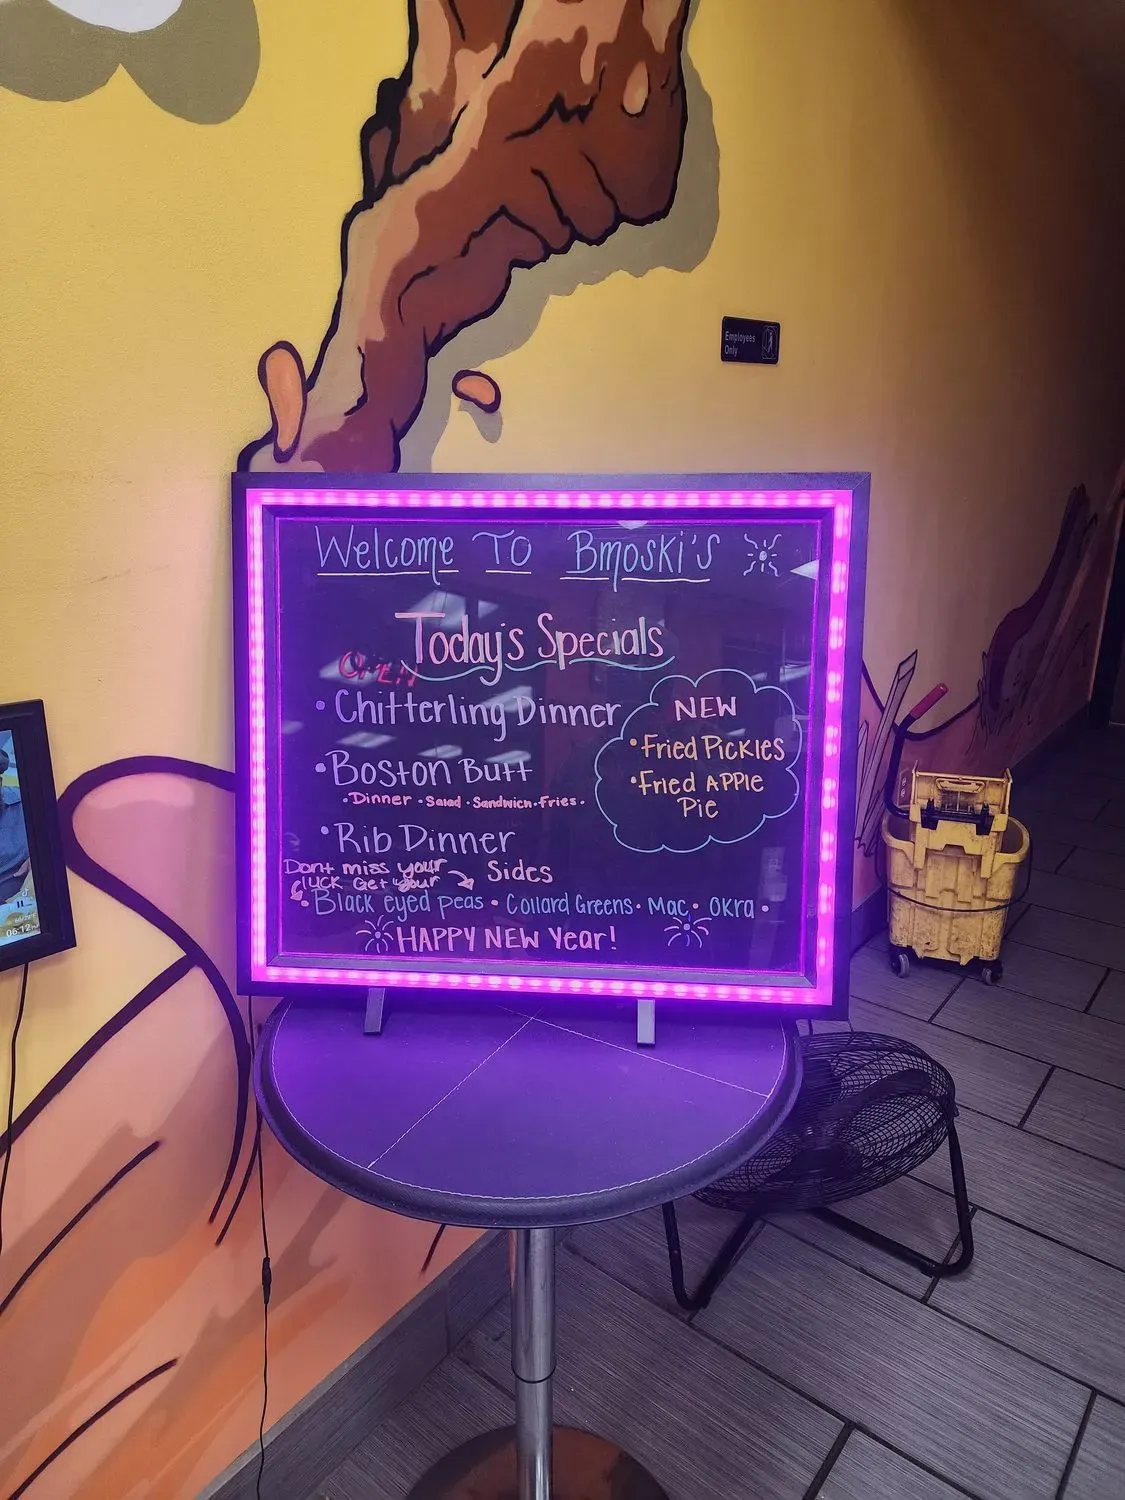 Employees
Only
Welcome TO Bmoski's
Today's Specials
OPEN
• Chitterling Dinner
• Boston Butt
• Dinner • Salad • Sandwich • Fries •
• Rib Dinner
NEW
• Fried Pickles
• Fried APPle
Pie
Dont miss your
luck Get your
Sides
• Black eyed peas • Collard Greens • Mac • Okra •
HAPPY NEW Year!